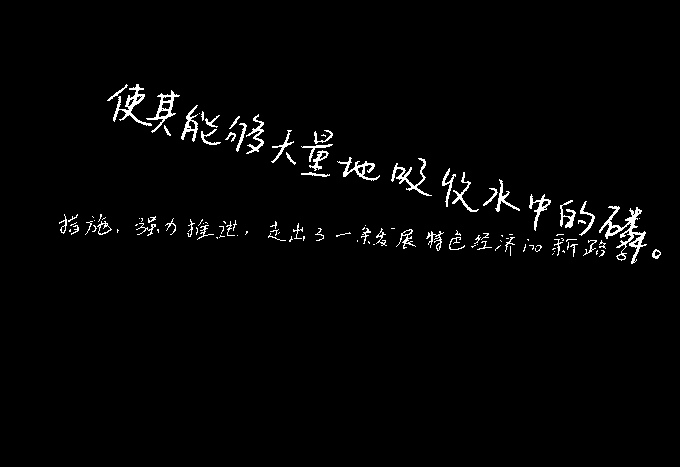 使其能够大量地吸收水中的磷。
措施，强力推进，走出了一条发展特色经济的新路子